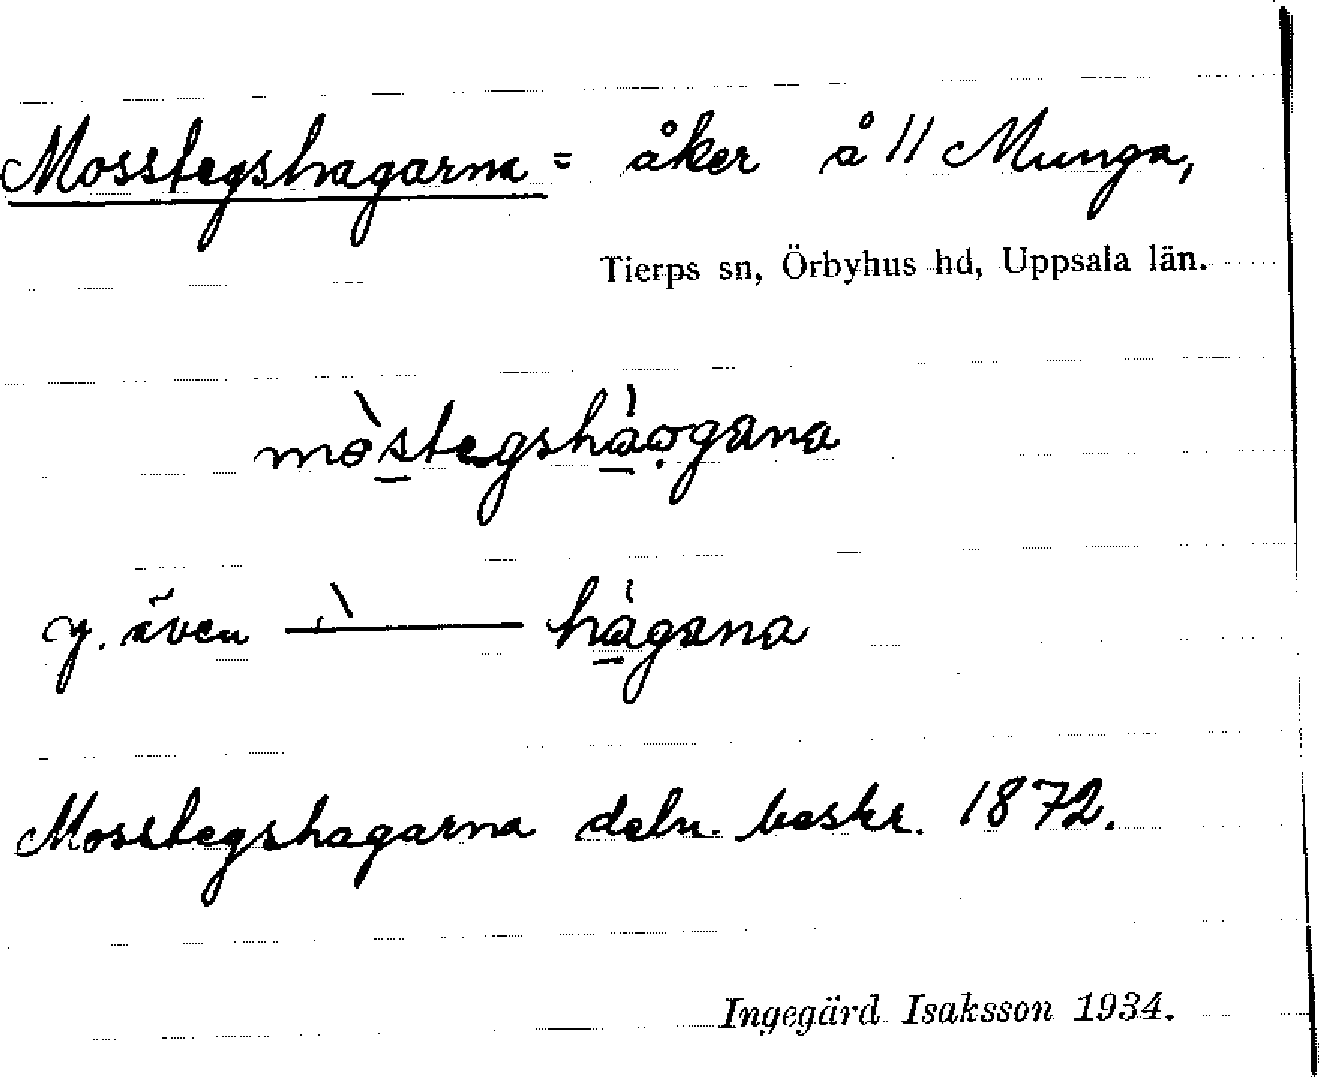 Mosstegshagarna = åker å 11 Munga,
Tierps sn, Örbyhus hd, Uppsala län.
mòstegshàǫgana
y. även ——— hàgana
Mosstegshagarna deln. beskr. 1872.
Ingegärd Isaksson 1934.